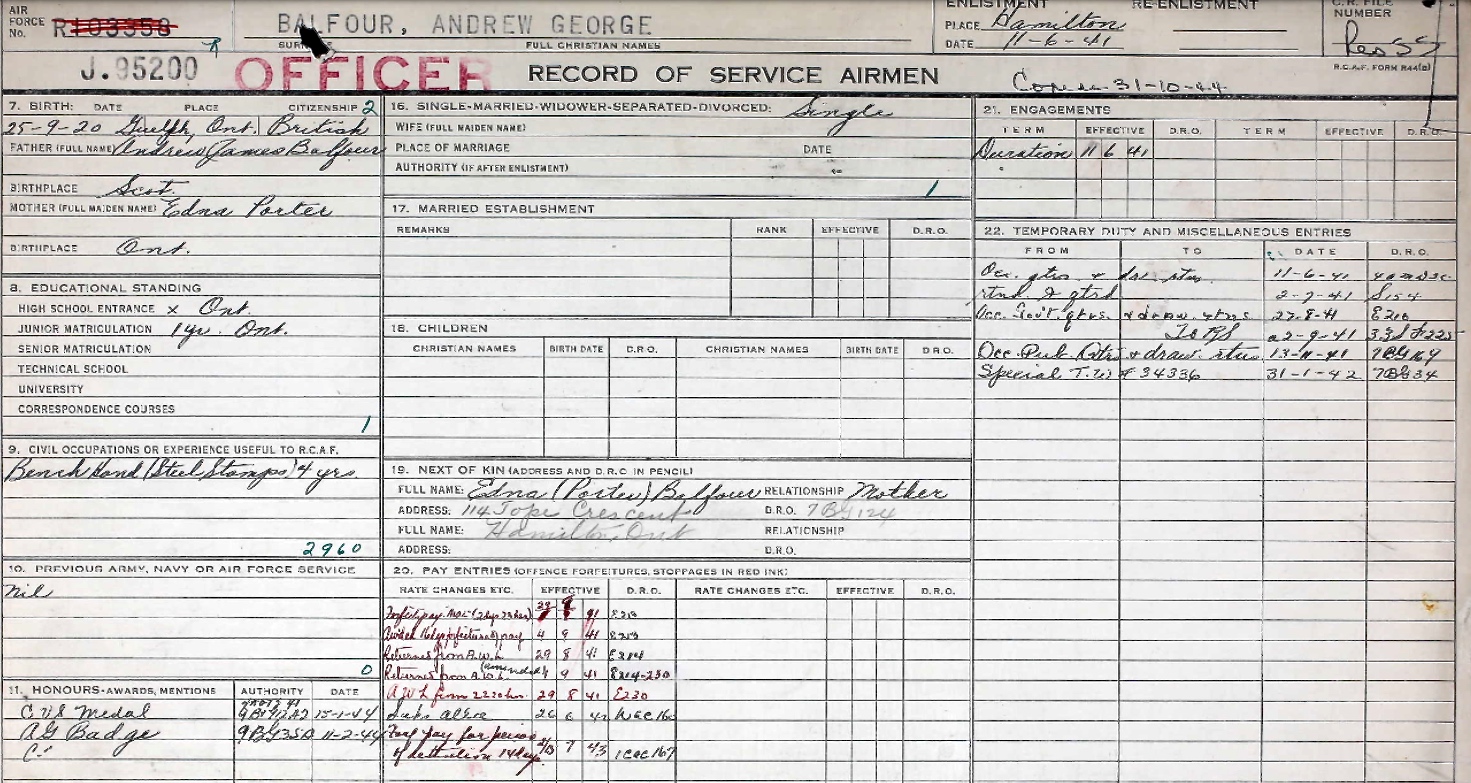 AIR FORCE No. R103358 BALFOUR, ANDREW GEORGE
SURNAME FULL CHRISTIAN NAMES
ENLISTMENT RE-ENLISTMENT
PLACE Hamilton
DATE 11-6-41
C.R. FILE NUMBER
R.C.A.F. FORM R44(B)
J.95200 OFFICER RECORD OF SERVICE AIRMEN
31-10-44
7. BIRTH: DATE PLACE CITIZENSHIP 2
25-9-20 Guelph, Ont. British
FATHER (FULL NAME) Andrew James Balfour
BIRTHPLACE Scot.
MOTHER (FULL MAIDEN NAME) Edna Porter
BIRTHPLACE Ont.
8. EDUCATIONAL STANDING
HIGH SCHOOL ENTRANCE x Ont.
JUNIOR MATRICULATION 1 yr. Ont.
SENIOR MATRICULATION
TECHNICAL SCHOOL
UNIVERSITY
CORRESPONDENCE COURSES
1
9. CIVIL OCCUPATIONS OR EXPERIENCE USEFUL TO R.C.A.F.
Bench Hand (Steel Stamps) 4 yrs.
2960
10. PREVIOUS ARMY, NAVY OR AIR FORCE SERVICE
nil
0
11. HONOURS-AWARDS, MENTIONS AUTHORITY DATE
C V S Medal 15-1-44
AG Badge 11-2-44
16. SINGLE-MARRIED-WIDOWER-SEPARATED-DIVORCED: Single
WIFE (FULL MAIDEN NAME)
PLACE OF MARRIAGE DATE
AUTHORITY (IF AFTER ENLISTMENT)
1
17. MARRIED ESTABLISHMENT
REMARKS RANK EFFECTIVE D.R.O.
18. CHILDREN
CHRISTIAN NAMES BIRTH DATE D.R.O. CHRISTIAN NAMES BIRTH DATE D.R.O.
19. NEXT OF KIN (ADDRESS AND D.R.O. IN PENCIL)
FULL NAME: Edna (Porter) Balfour RELATIONSHIP Mother
ADDRESS: 114 Tope Crescent D.R.O. 7BG124
FULL NAME: Hamilton, Ont RELATIONSHIP
ADDRESS: D.R.O.
20. PAY ENTRIES (OFFENCE FORFEITURES, STOPPAGES IN RED INK)
RATE CHANGES ETC. EFFECTIVE D.R.O. RATE CHANGES ETC. EFFECTIVE D.R.O.
Forfeit pay
4 9 41
Returned from A.W.L. 29 8 41 E214
Returned from A.W.L. (amended) 9 41 E214-230
A.W.L from 2230 hrs. 29 8 41 E230
26 6 42
Forf pay for period
of detention 14 days 7 43
21. ENGAGEMENTS
TERM EFFECTIVE D.R.O. TERM EFFECTIVE D.R.O.
Duration 11 6 41
22. TEMPORARY DUTY AND MISCELLANEOUS ENTRIES
FROM TO DATE D.R.O.
Occ. qtrs & 11-6-41
2-7-41 S154
Occ. Gov't qtrs. & draw. 27-8-41 E210
2-9-41
Occ. Pub. Qtrs & draw. 13-11-41 7BG169
Special T.W # 34336 31-1-42 7BG34